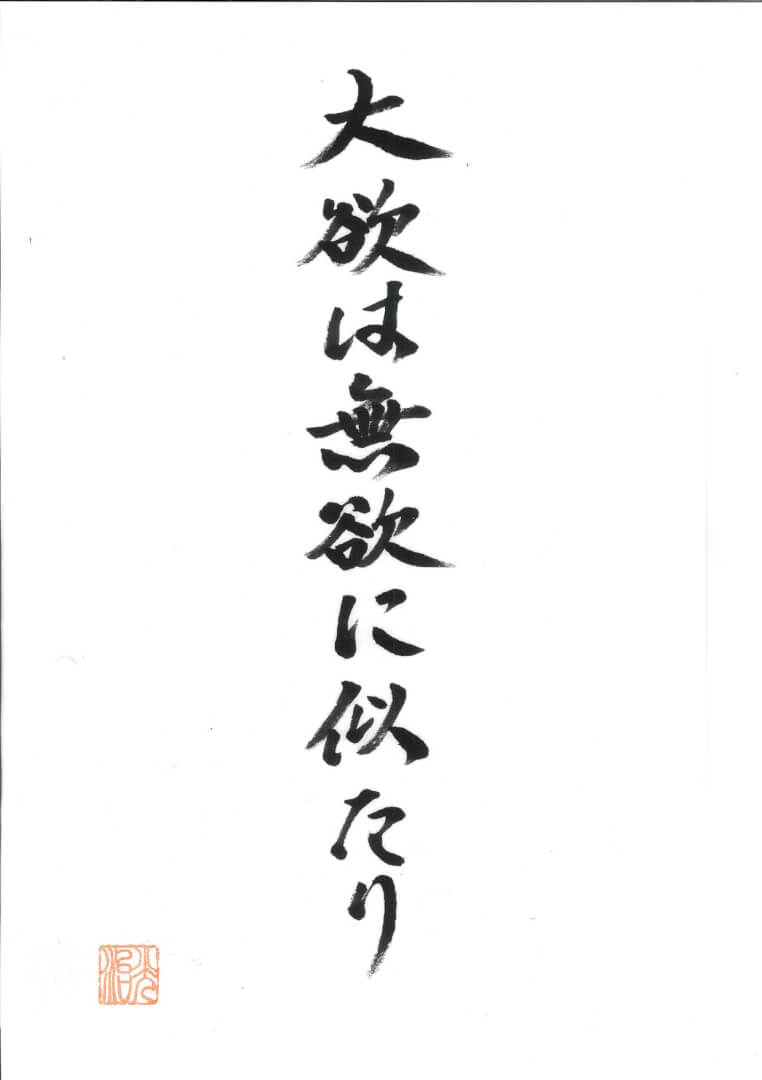 大欲は無欲に似たり